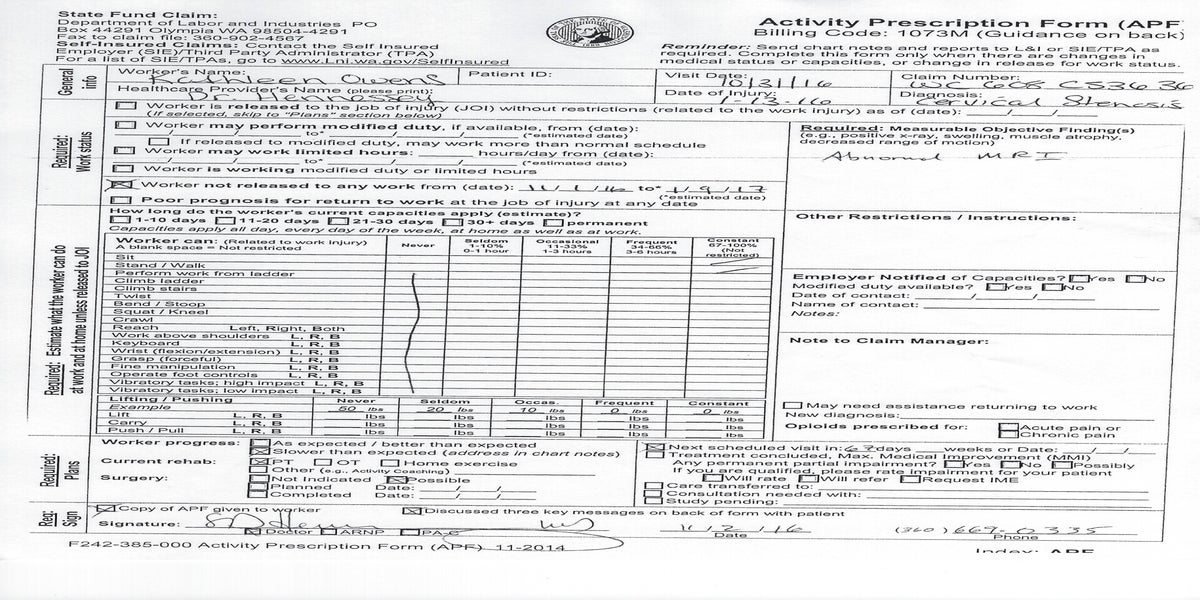 State Fund Claim:
Department of Labor and Industries PO
Box 44291 Olympia WA 98504-4291
Fax to claim file: 360-902-4567
Self-Insured Claims: Contact the Self Insured
Employer (SIE)/Third Party Administrator (TPA)
For a list of SIE/TPAs, go to www.Lni.wa.gov/SelfInsured
Activity Prescription Form (APF
Billing Code: 1073M (Guidance on back)
Reminder: Send chart notes and reports to L&I or SIE/TPA as
required. Complete this form only when there are changes in
medical status or capacities, or change in release for work status.
General info
Worker's Name: Kathleen Owens
Patient ID:
Visit Date: 10/31/16
Claim Number:
Healthcare Provider's Name (please print): Dr Hennessey
Date of Injury: 1-13-16
Diagnosis: Cervical Stenosis
Required: Work status
Worker is released to the job of injury (JOI) without restrictions (related to the work injury) as of (date): __/__/__
(If selected, skip to "Plans" section below)
Worker may perform modified duty, if available, from (date):
__/__/__ to* __/__/__ (*estimated date)
If released to modified duty, may work more than normal schedule
Worker may work limited hours: ____ hours/day from (date):
__/__/__ to* __/__/__ (*estimated date)
Worker is working modified duty or limited hours
Worker not released to any work from (date): 11/1/16 to* 1/9/17
(*estimated date)
Poor prognosis for return to work at the job of injury at any date
Required: Measurable Objective Finding(s)
(e.g., positive x-ray, swelling, muscle atrophy,
decreased range of motion)
Abnormal MRI
Required: Estimate what the worker can do
at work and at home unless released to JOI
How long do the worker's current capacities apply (estimate)?
1-10 days 11-20 days 21-30 days 30+ days permanent
Capacities apply all day, every day of the week, at home as well as at work.
Worker can: (Related to work injury)
A blank space = Not restricted
Never
Seldom 1-10% 0-1 hour
Occasional 11-33% 1-3 hours
Frequent 34-66% 3-6 hours
Constant 67-100% (Not restricted)
Sit
Stand / Walk
Perform work from ladder
Climb ladder
Climb stairs
Twist
Bend / Stoop
Squat / Kneel
Crawl
Reach Left, Right, Both
Work above shoulders L, R, B
Keyboard L, R, B
Wrist (flexion/extension) L, R, B
Grasp (forceful) L, R, B
Fine manipulation L, R, B
Operate foot controls L, R, B
Vibratory tasks; high impact L, R, B
Vibratory tasks; low impact L, R, B
Lifting / Pushing Never Seldom Occas. Frequent Constant
Example 50 lbs 20 lbs 10 lbs 0 lbs 0 lbs
Lift L, R, B lbs lbs lbs lbs lbs
Carry L, R, B lbs lbs lbs lbs lbs
Push / Pull L, R, B lbs lbs lbs lbs lbs
Other Restrictions / Instructions:
Employer Notified of Capacities? Yes No
Modified duty available? Yes No
Date of contact: __/__/__
Name of contact:
Notes:
Note to Claim Manager:
May need assistance returning to work
New diagnosis:
Opioids prescribed for: Acute pain or
Chronic pain
Required: Plans
Worker progress: As expected / better than expected
Slower than expected (address in chart notes)
Current rehab: PT OT Home exercise
Other (e.g. Activity Coaching)
Surgery: Not Indicated Possible
Planned Date: __/__/__
Completed Date: __/__/__
Next scheduled visit in: days weeks or Date: __/__/__
Treatment concluded, Max. Medical Improvement (MMI)
Any permanent partial impairment? Yes No Possibly
If you are qualified, please rate impairment for your patient
Will rate Will refer Request IME
Care transferred to:
Consultation needed with:
Study pending:
Req: Sign
Copy of APF given to worker
Discussed three key messages on back of form with patient
Signature:
11/2/16
(360) 669-0335
Doctor ARNP PA-C
Date
Phone
F242-385-000 Activity Prescription Form (APF) 11-2014
Index: APF